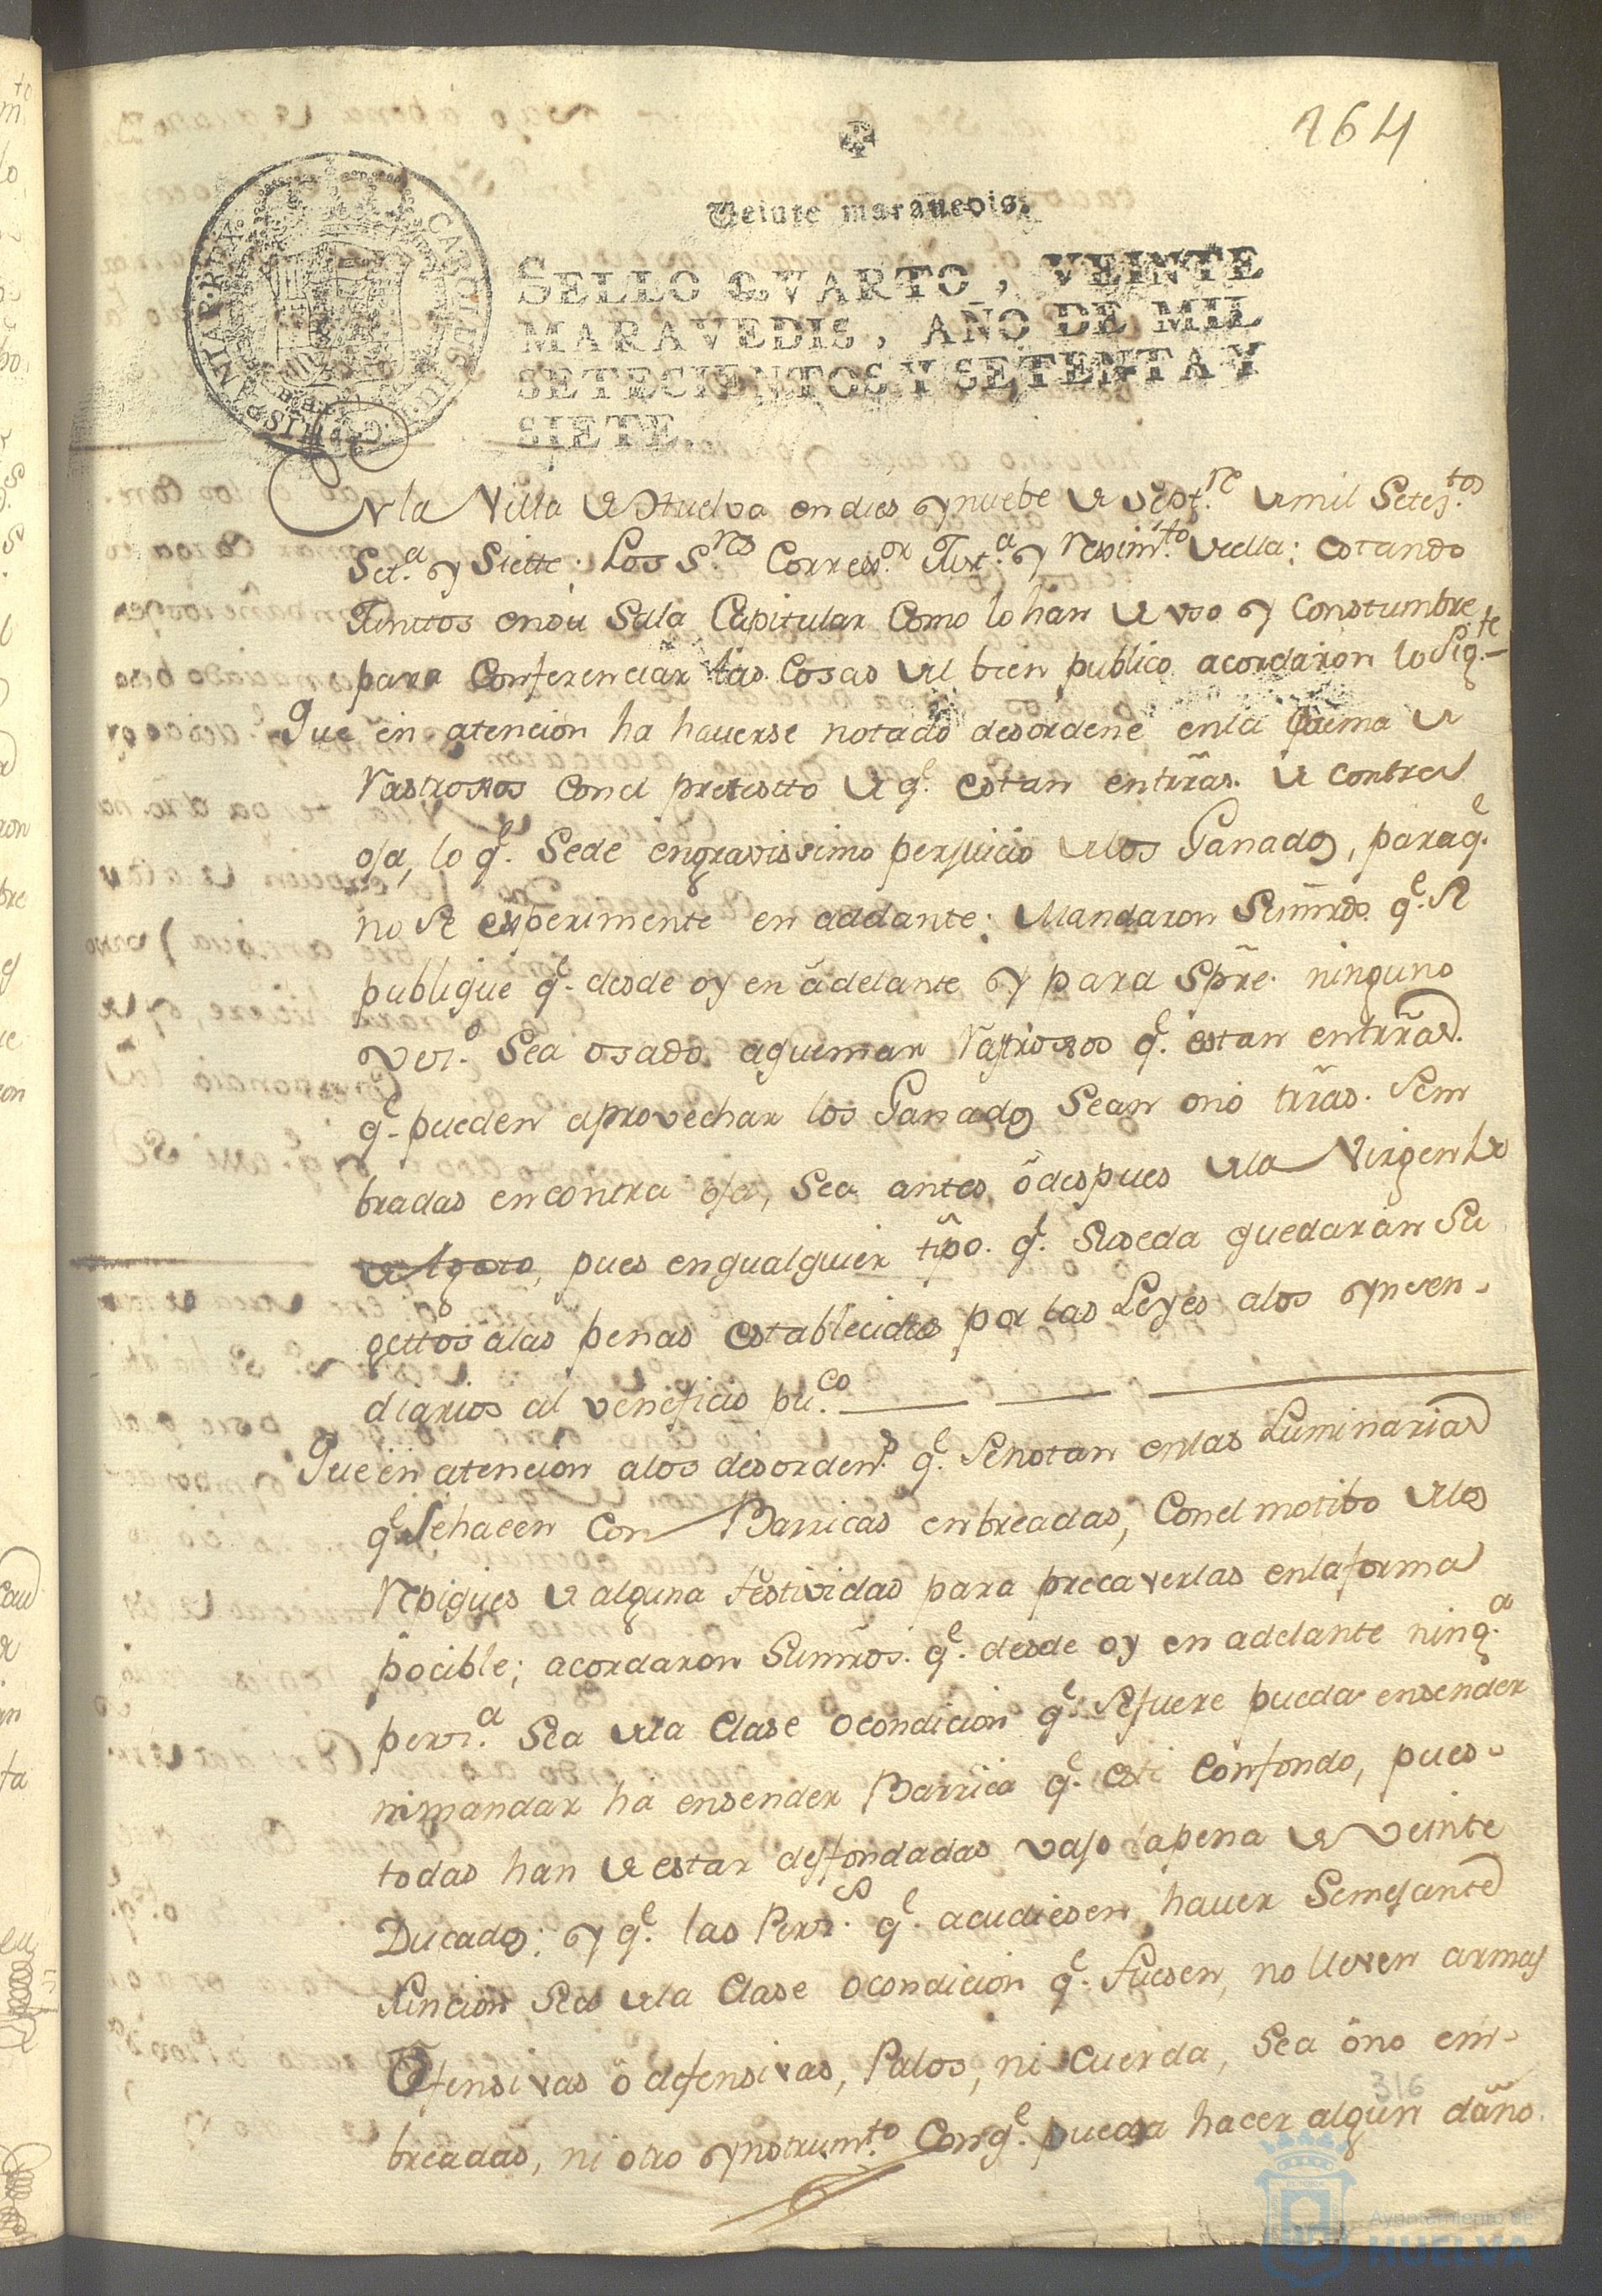 164
Veinte maravedis.
SELLO QVARTO, VEINTE
MARAVEDIS, AÑO DE MIL
SETECIENTOS Y SETENTA Y
SIETE.
CAROLUS III D. G. HISPANIAR. REX
En la Villa de Huelva en dies y nuebe de Sept.re de mil Setes.tos
Set.a y Siette; Los S.res Correx.or Just.a y Reximt.o de ella; estando
Junttos en su Sala Capitular Como lo han de uso y Constumbre
para Conferenciar las Cosas del bien publico acordaron lo Sig.te
Que en atencion ha hauerse notado desordene en la quema de
Rastrojos con el pretestto de q.e estan en trr̃as. de contra
oja, lo q.e Sede en gravissimo perjuicio de los Ganados, para q.e
no se experimente en adelante; Mandaron Su mrds. q.e se
publique q.e desde oy en adelante y para Spr̃e. ninguno
Vez.o Sea osado a quemar Rastrojos q.e estan en trr̃as.
q.e pueden aprovechar los Ganados Sean o no trr̃as. Sem
bradas en contra oja, Sea antes, o despues de la Virgen de
de Agosto, pues en qualquier tpo. q.e Suseda quedaran Su
gettos a las penas establecidas por las Leyes a los ynsen-
diarios al veneficio pu.co
Que en atencion a los desorden.s q.e Se notan en las Luminarias
q.e Se hacen Con Barricas enbreadas, Con el motibo de los
Repiques de alguna festividad para precaverlas en la forma
pocible; acordaron Su mrds. q.e desde oy en adelante ning.a
pers.a Sea de la Clase o condicion q.e Se fuere pueda ensender
ni mandar ha ensender Barrica q.e esté Con fondo, pues
todas han de estar desfondadas vajo la pena de veinte
Ducados; y q.e las Pers.s q.e acudiesen haver Semejante
funcion Sea de la Clase o condicion q.e fuesen, no lleven armas
Ofensivas o defensivas, Palos, ni cuerda, Sea o no em-
breadas, ni otro ynstrumt.o Con q.e pueda hacer algun daño.
316
Ayuntamiento de
HUELVA